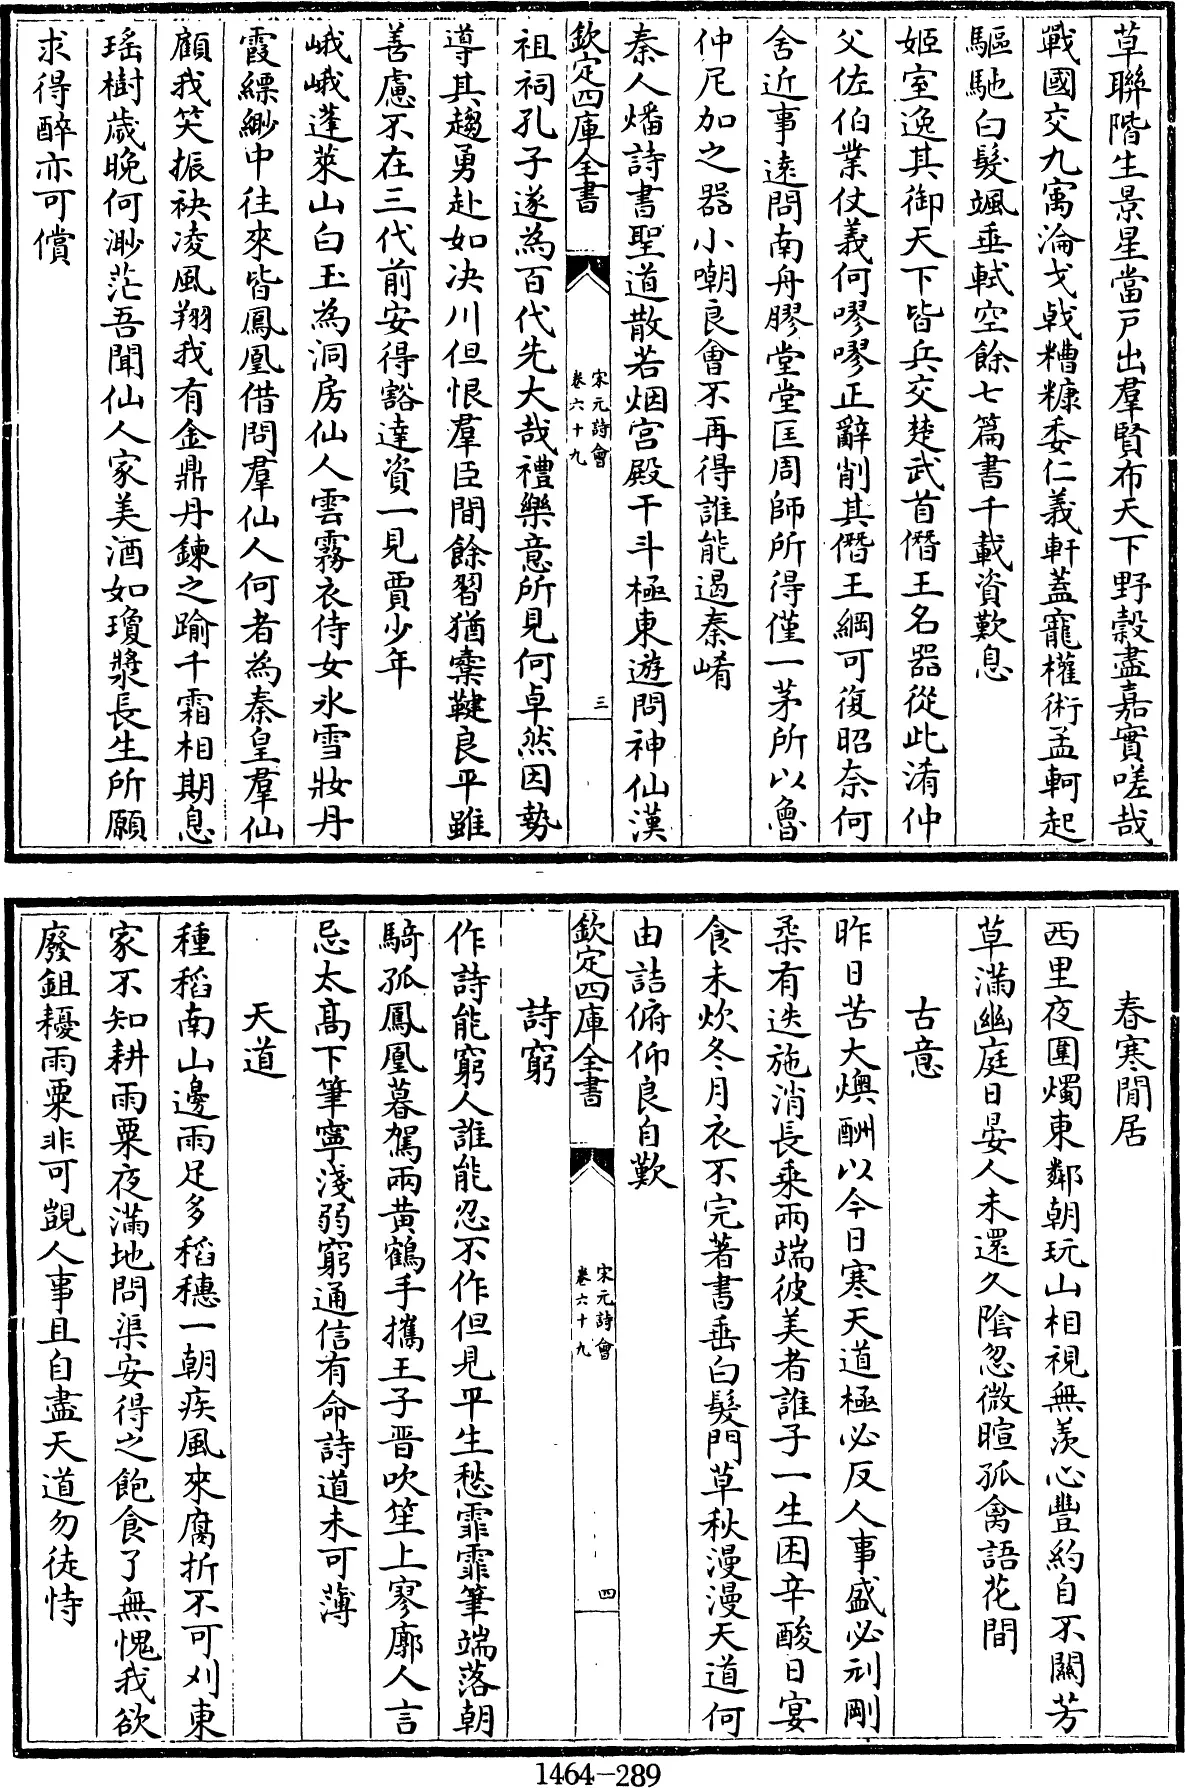 草聯階生景星當戶出羣賢布天下野穀盡嘉實嗟哉
戰國交九㝢淪戈戟糟糠委仁義軒蓋寵權術孟軻起
驅馳白髮颯垂軾空餘七篇書千載資歎息
姬室逸其御天下皆兵交楚武首僭王名器從此淆仲
父佐伯業仗義何嘐嘐正辭削其僭王綱可復昭奈何
舍近事遠問南舟膠堂堂匡周師所得僅一茅所以魯
仲尼加之器小嘲良會不再得誰能遏秦崤
秦人燔詩書聖道散若烟宫殿干斗極東遊問神仙漢
欽定四庫全書
宋元詩會
卷六十九
三
祖祠孔子遂為百代先大哉禮樂意所見何卓然因勢
導其趨勇赴如决川但恨羣臣間餘習猶櫜鞬良平雖
善慮不在三代前安得豁達資一見賈少年
峨峨蓬萊山白玉為洞房仙人雲霧衣侍女氷雪妝丹
霞縹緲中往來皆鳳凰借問羣仙人何者為秦皇羣仙
顧我笑振袂凌風翔我有金鼎丹鍊之踰千霜相期息
瑶樹歳晚何渺茫吾聞仙人家美酒如瓊漿長生所願
求得醉亦可償
春寒閒居
西里夜圍燭東鄰朝玩山相視無羨心豐約自不關芳
草滿幽庭日晏人未還久陰忽微暄孤禽語花間
古意
昨日苦大燠酬以今日寒天道極必反人事盛必刓剛
柔有迭施消長乘兩端彼美者誰子一生困辛酸日宴
食未炊冬月衣不完著書垂白髮門草秋漫漫天道何
由詰俯仰良自歎
欽定四庫全書
宋元詩會
卷六十九
四
詩窮
作詩能窮人誰能忍不作但見平生愁霏霏筆端落朝
騎孤鳳凰暮駕兩黄鶴手攜王子晋吹笙上寥廓人言
忌太高下筆寧淺弱窮通信有命詩道未可薄
天道
種稻南山邊雨足多稻穗一朝疾風來腐折不可刈東
家不知耕雨粟夜滿地問渠安得之飽食了無愧我欲
廢鉏耰雨粟非可覬人事且自盡天道勿徒恃
1464-289